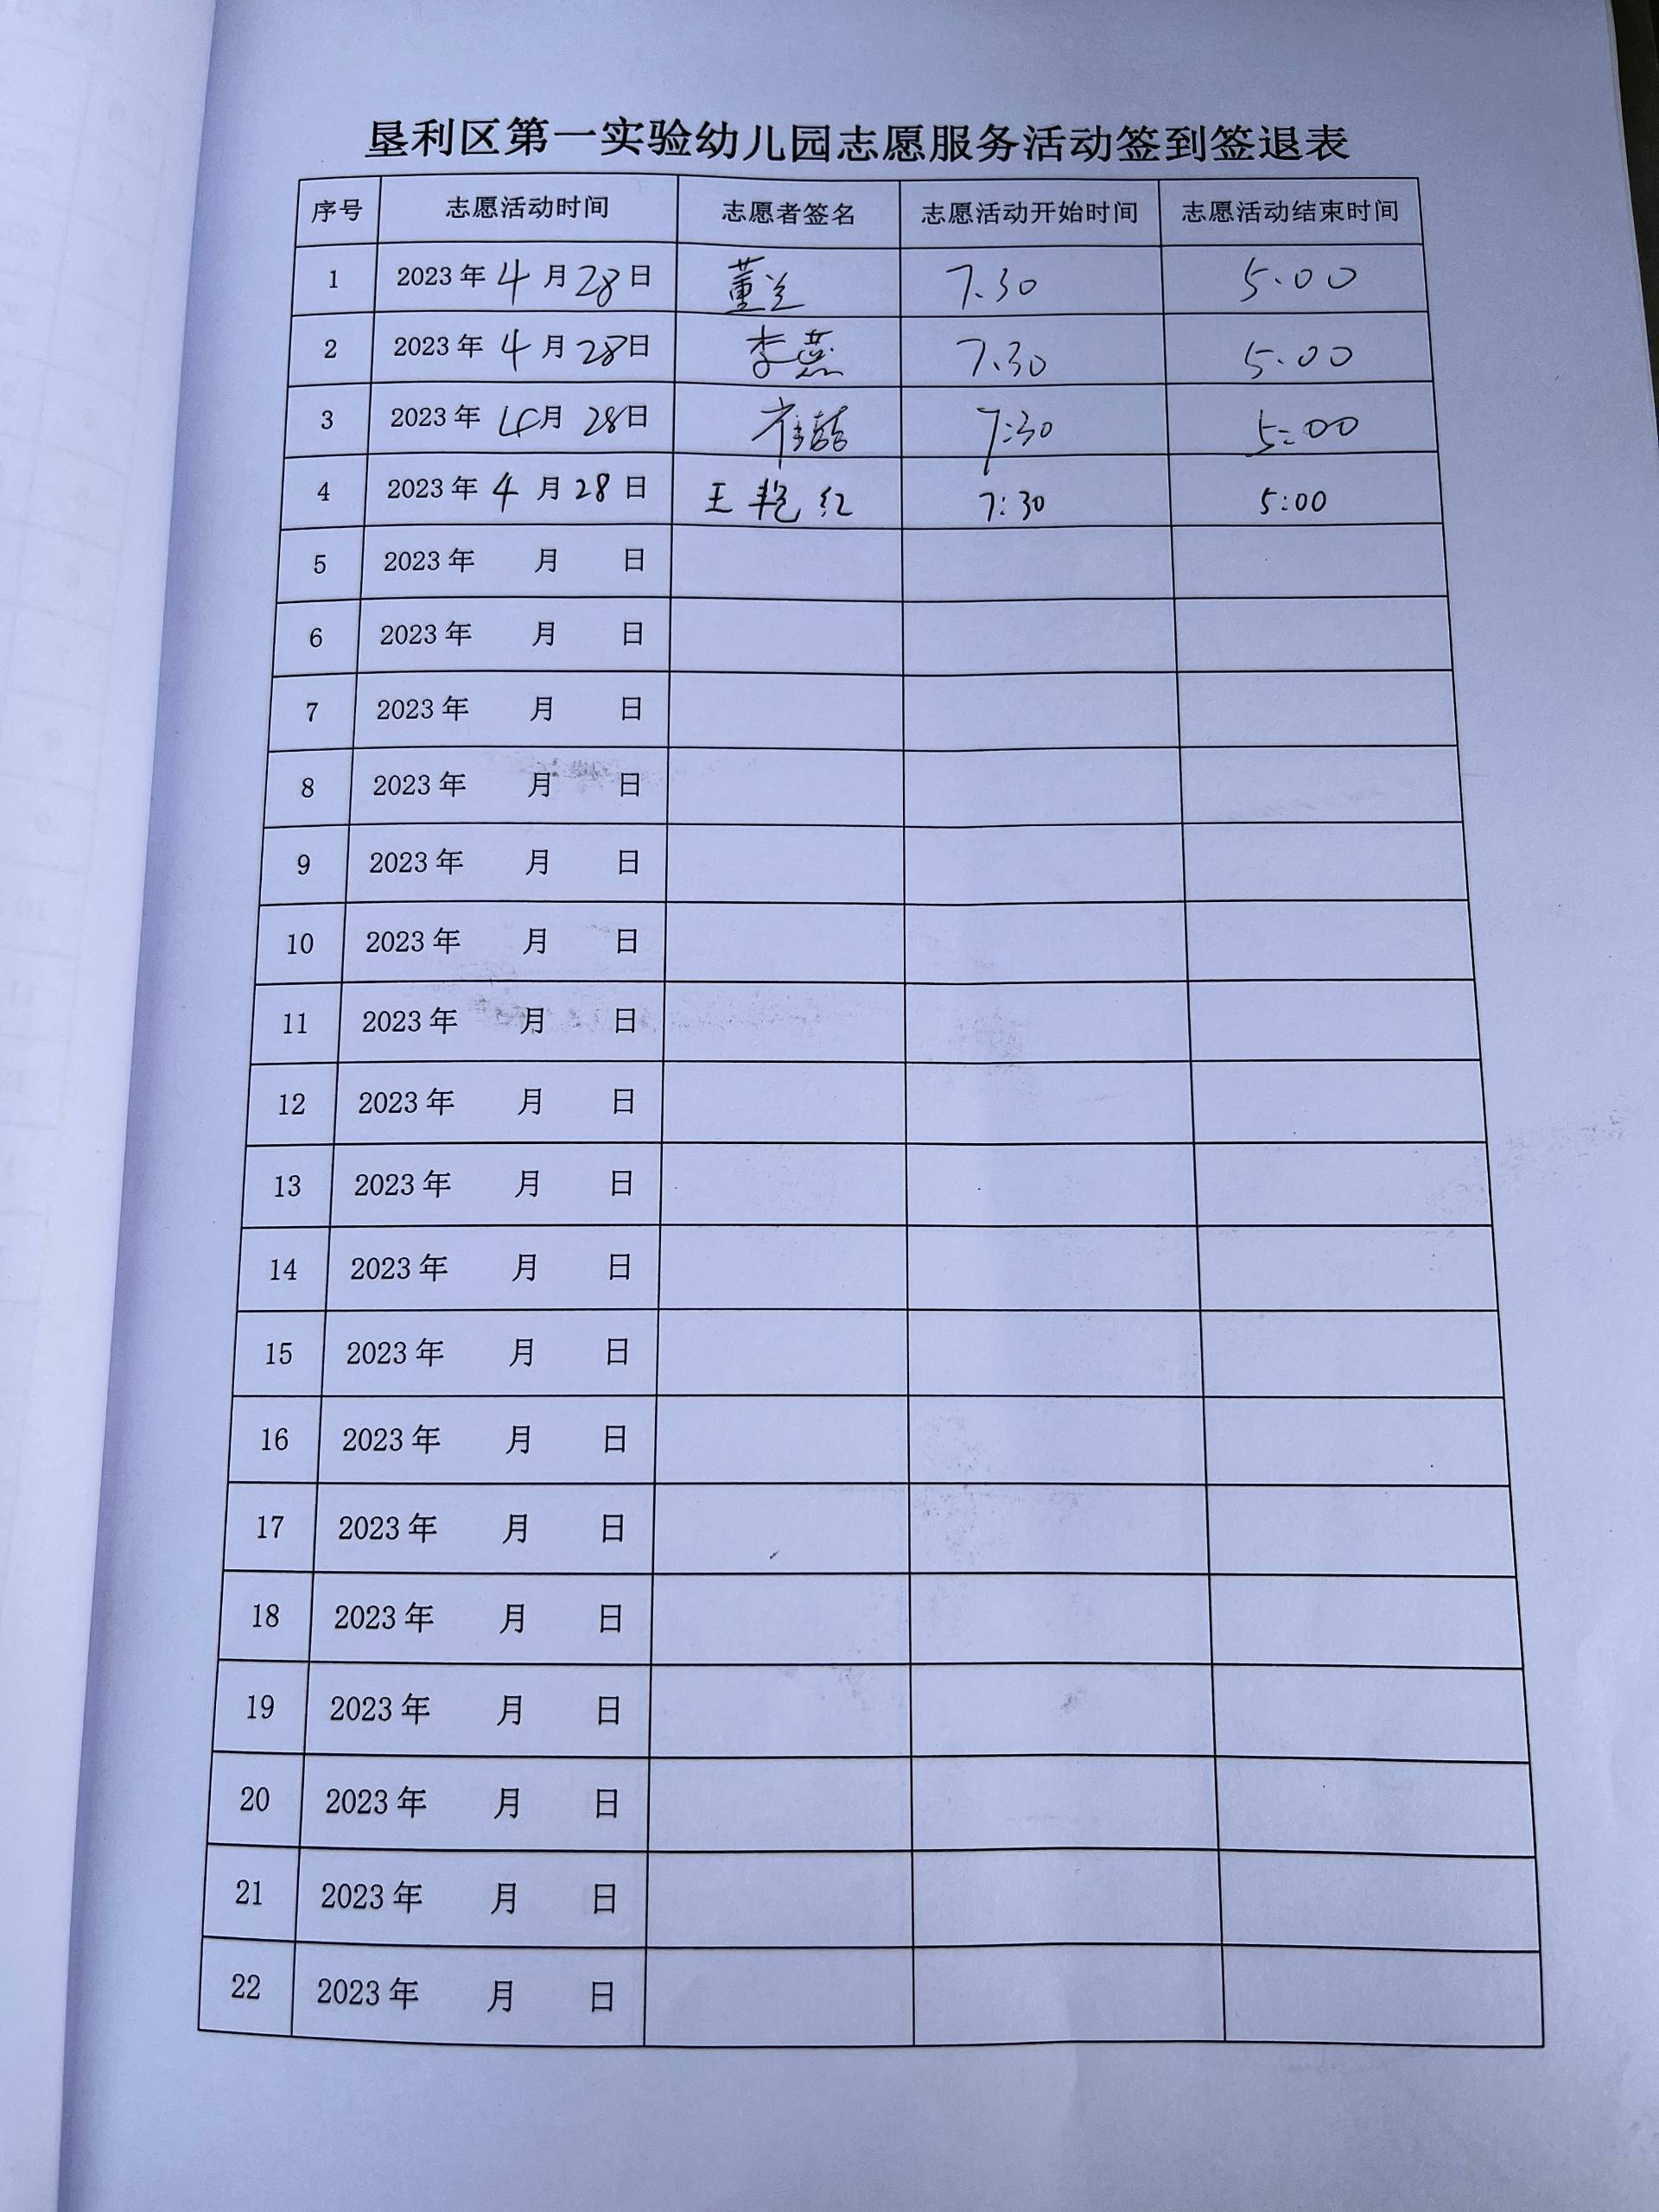 垦利区第一实验幼儿园志愿服务活动签到签退表
序号 志愿活动时间 志愿者签名 志愿活动开始时间 志愿活动结束时间
1 2023年4月28日 董兰 7.30 5.00
2 2023年4月28日 李燕 7.30 5.00
3 2023年4月28日 崔喆 7:30 5:00
4 2023年4月28日 王艳红 7:30 5:00
5 2023年 月 日
6 2023年 月 日
7 2023年 月 日
8 2023年 月 日
9 2023年 月 日
10 2023年 月 日
11 2023年 月 日
12 2023年 月 日
13 2023年 月 日
14 2023年 月 日
15 2023年 月 日
16 2023年 月 日
17 2023年 月 日
18 2023年 月 日
19 2023年 月 日
20 2023年 月 日
21 2023年 月 日
22 2023年 月 日